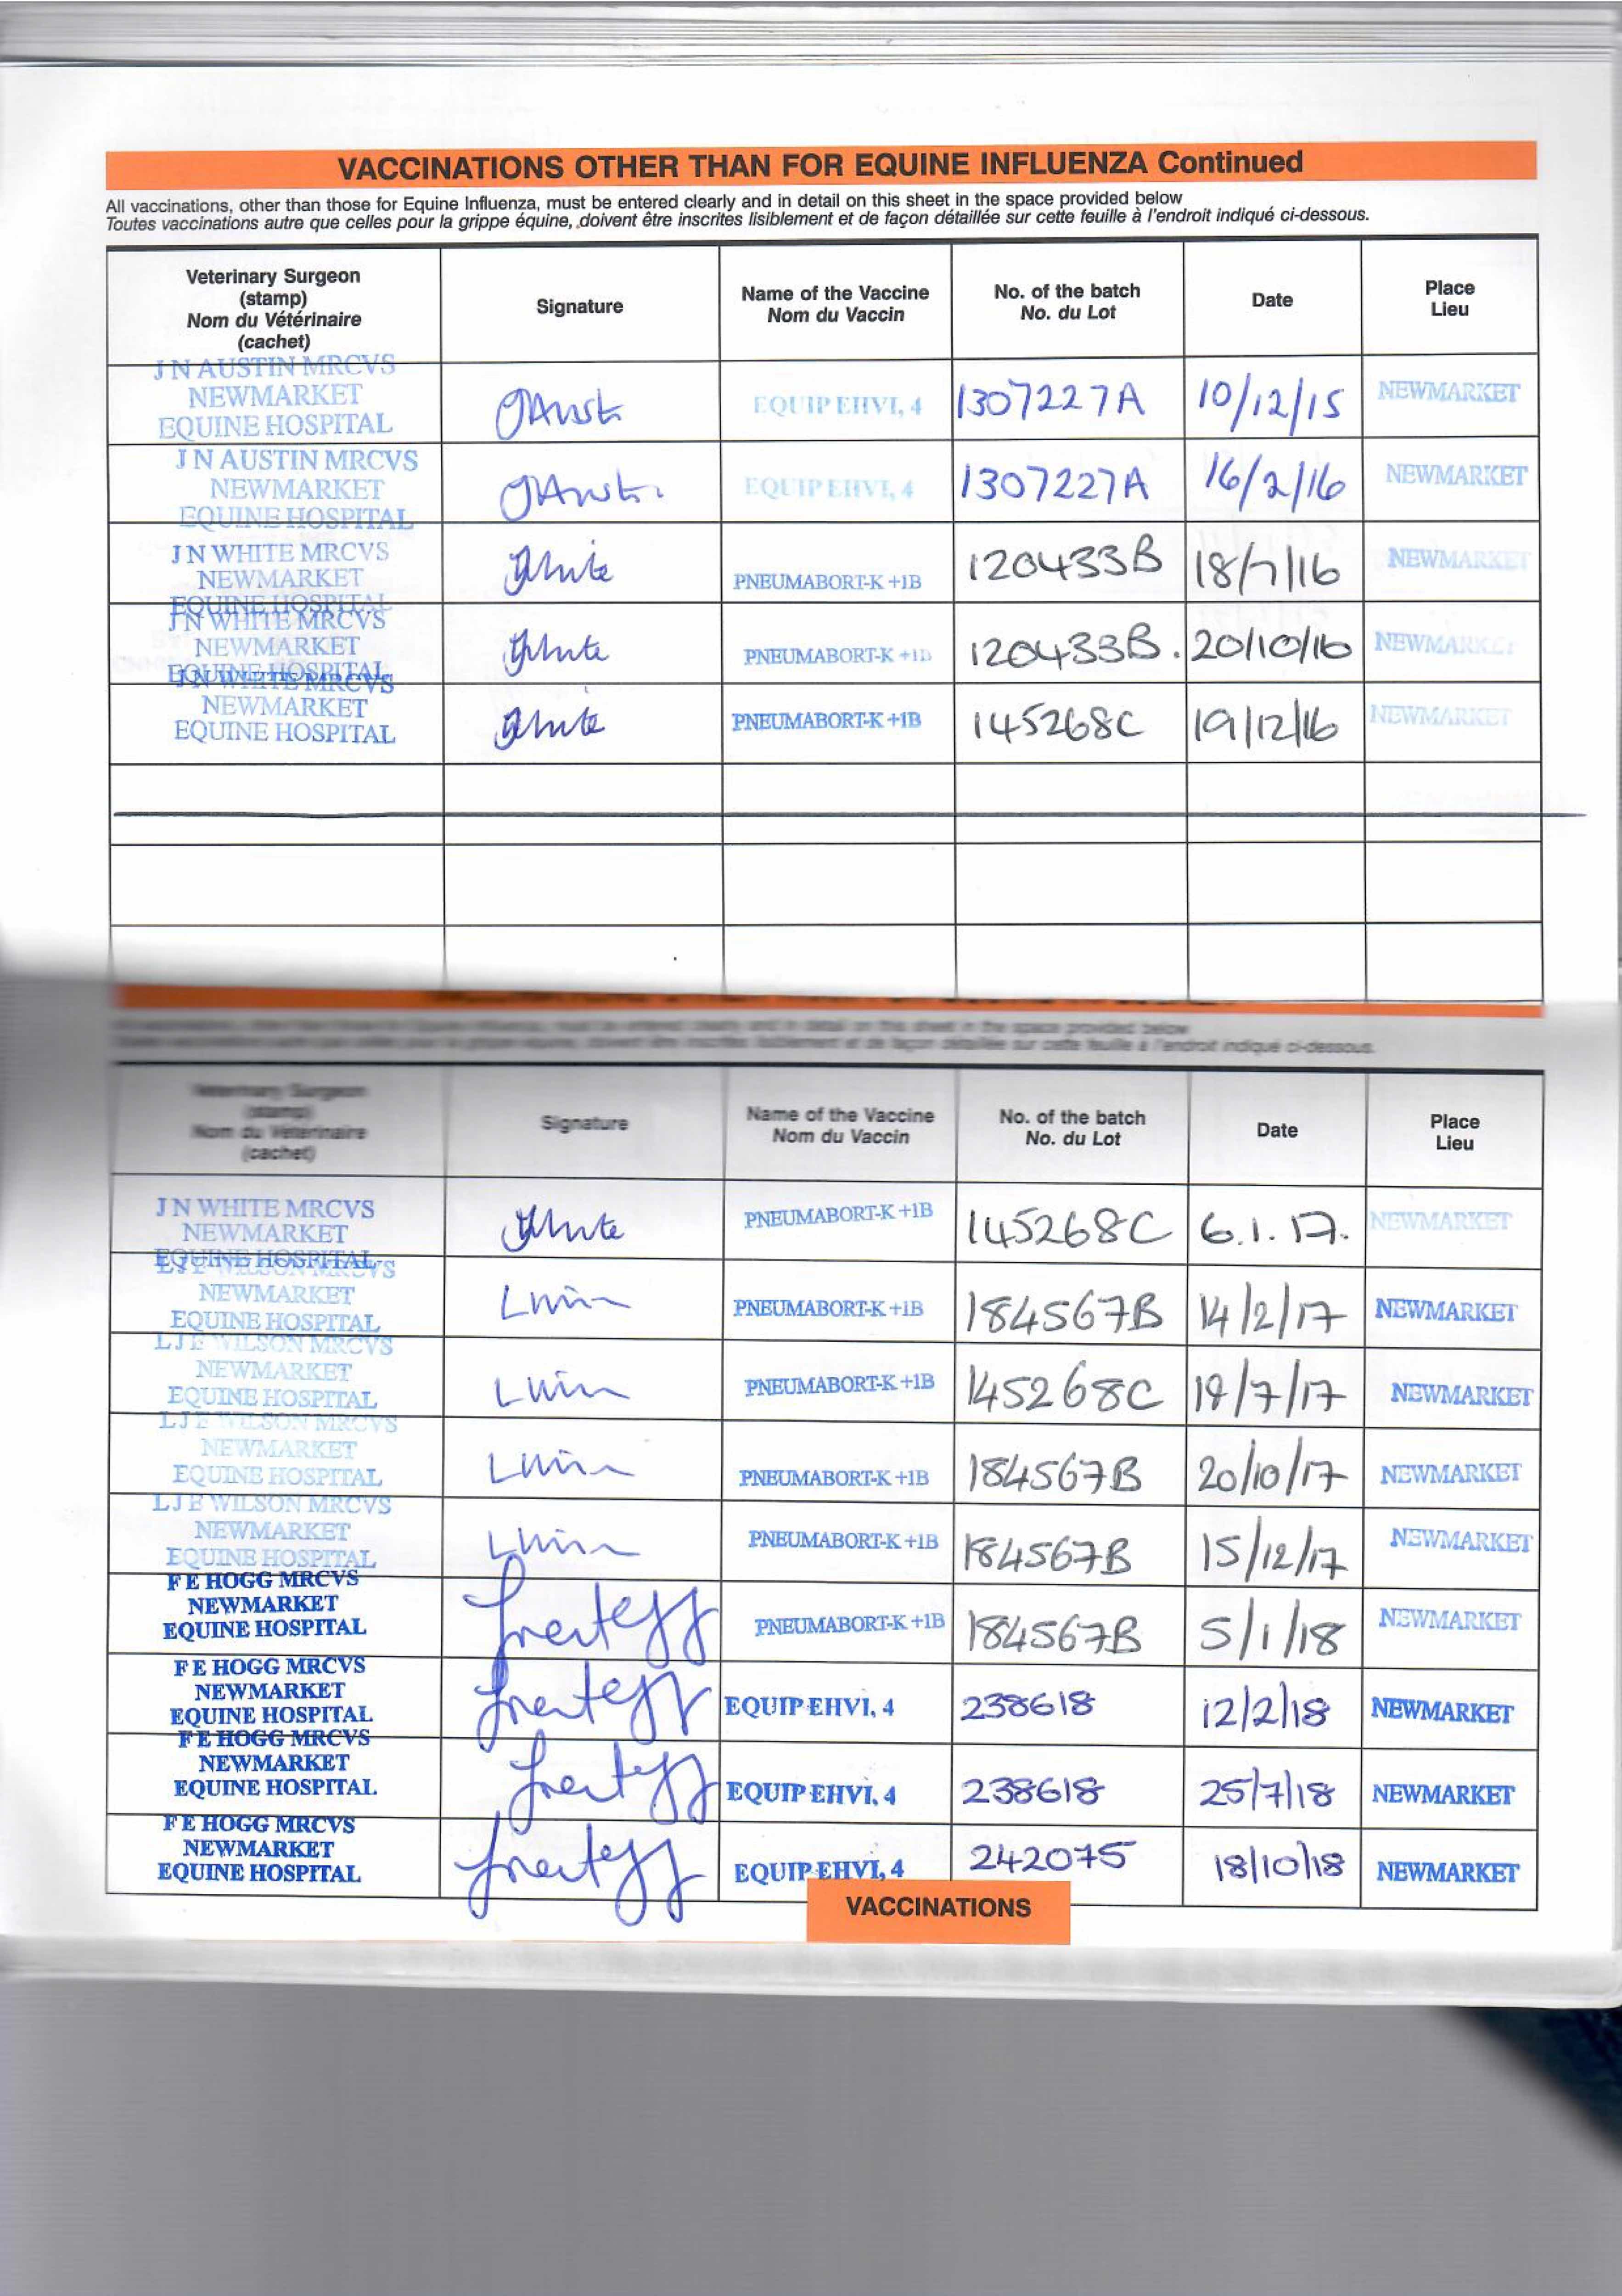 VACCINATIONS OTHER THAN FOR EQUINE INFLUENZA Continued
All vaccinations, other than those for Equine Influenza, must be entered clearly and in detail on this sheet in the space provided below
Toutes vaccinations autre que celles pour la grippe équine, doivent être inscrites lisiblement et de façon détaillée sur cette feuille à l'endroit indiqué ci-dessous.
Veterinary Surgeon
(stamp)
Nom du Vétérinaire
(cachet)
Signature
Name of the Vaccine
Nom du Vaccin
No. of the batch
No. du Lot
Date
Place
Lieu
J N AUSTIN MRCVS
NEWMARKET
EQUINE HOSPITAL
EQUIP EHVI, 4
1307227A
10/12/15
NEWMARKET
J N AUSTIN MRCVS
NEWMARKET
EQUINE HOSPITAL
EQUIP EHVI, 4
1307227A
16/2/16
NEWMARKET
J N WHITE MRCVS
NEWMARKET
EQUINE HOSPITAL
PNEUMABORT-K +1B
120433B
18/7/16
NEWMARKET
J N WHITE MRCVS
NEWMARKET
EQUINE HOSPITAL
PNEUMABORT-K +1B
120433B.
20/10/16
NEWMARKET
J N WHITE MRCVS
NEWMARKET
EQUINE HOSPITAL
PNEUMABORT-K +1B
145268C
19/12/16
NEWMARKET
All vaccinations, other than those for Equine Influenza, must be entered clearly and in detail on this sheet in the space provided below
Toutes vaccinations autre que celles pour la grippe équine, doivent être inscrites lisiblement et de façon détaillée sur cette feuille à l'endroit indiqué ci-dessous.
Veterinary Surgeon
(stamp)
Nom du Vétérinaire
(cachet)
Signature
Name of the Vaccine
Nom du Vaccin
No. of the batch
No. du Lot
Date
Place
Lieu
J N WHITE MRCVS
NEWMARKET
EQUINE HOSPITAL
PNEUMABORT-K +1B
145268C
6.1.17.
NEWMARKET
LJE WILSON MRCVS
NEWMARKET
EQUINE HOSPITAL
PNEUMABORT-K +1B
184567B
14/2/17
NEWMARKET
LJE WILSON MRCVS
NEWMARKET
EQUINE HOSPITAL
PNEUMABORT-K +1B
145268C
19/7/17
NEWMARKET
LJE WILSON MRCVS
NEWMARKET
EQUINE HOSPITAL
PNEUMABORT-K +1B
184567B
20/10/17
NEWMARKET
LJE WILSON MRCVS
NEWMARKET
EQUINE HOSPITAL
PNEUMABORT-K +1B
184567B
15/12/17
NEWMARKET
F E HOGG MRCVS
NEWMARKET
EQUINE HOSPITAL
PNEUMABORT-K +1B
184567B
5/1/18
NEWMARKET
F E HOGG MRCVS
NEWMARKET
EQUINE HOSPITAL
EQUIP EHVI, 4
238618
12/2/18
NEWMARKET
F E HOGG MRCVS
NEWMARKET
EQUINE HOSPITAL
EQUIP EHVI, 4
238618
25/7/18
NEWMARKET
F E HOGG MRCVS
NEWMARKET
EQUINE HOSPITAL
EQUIP EHVI, 4
242075
18/10/18
NEWMARKET
VACCINATIONS